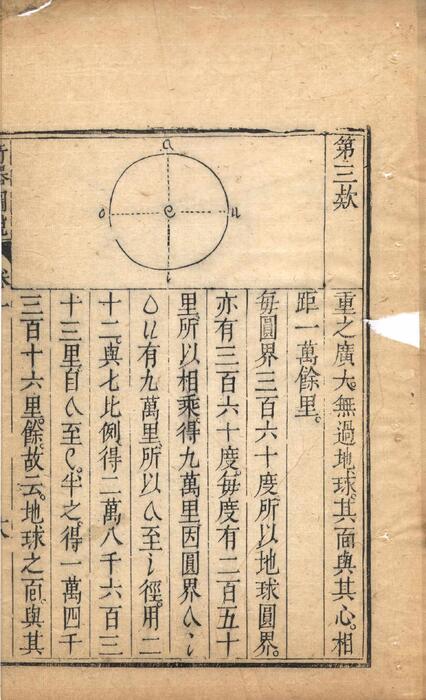 第三款
a
o
e
u
i
重之廣大。無過地球。其面與其心。相
距一萬餘里。
每圓界三百六十度所以地球圓界。
亦有三百六十度。每度有二百五十
里。所以相乘。得九萬里因圓界
有九萬里。所以
至
徑。用二
十二。與七比例。得二萬八千六百三
十三里。自
至
半之。得一萬四千
三百十六里。餘。故云。地球之面。與其